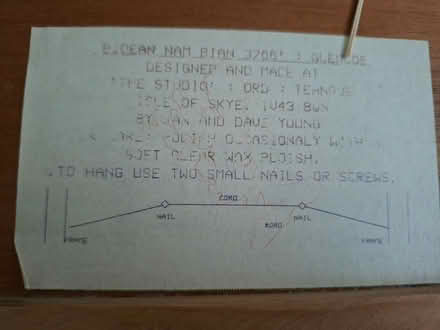 B.DEAN NAM BIAN 3766' : GLENCOE
DESIGNED AND MADE AT
'THE STUDIO' : ORD :
ISLE OF SKYE. IV43 8WN
BY JAN AND DAVE YOUNG
POLISH OCCASIONALY WITH
SOFT CLEAR WAX POLISH.
TO HANG USE TWO SMALL NAILS OR SCREWS.
CORD
NAIL
NAIL
CORD
FRAME
FRAME